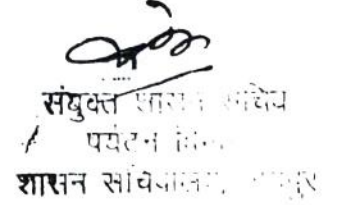 संयुक्त शासन सचिव
पर्यटन
शासन सचिवालय,